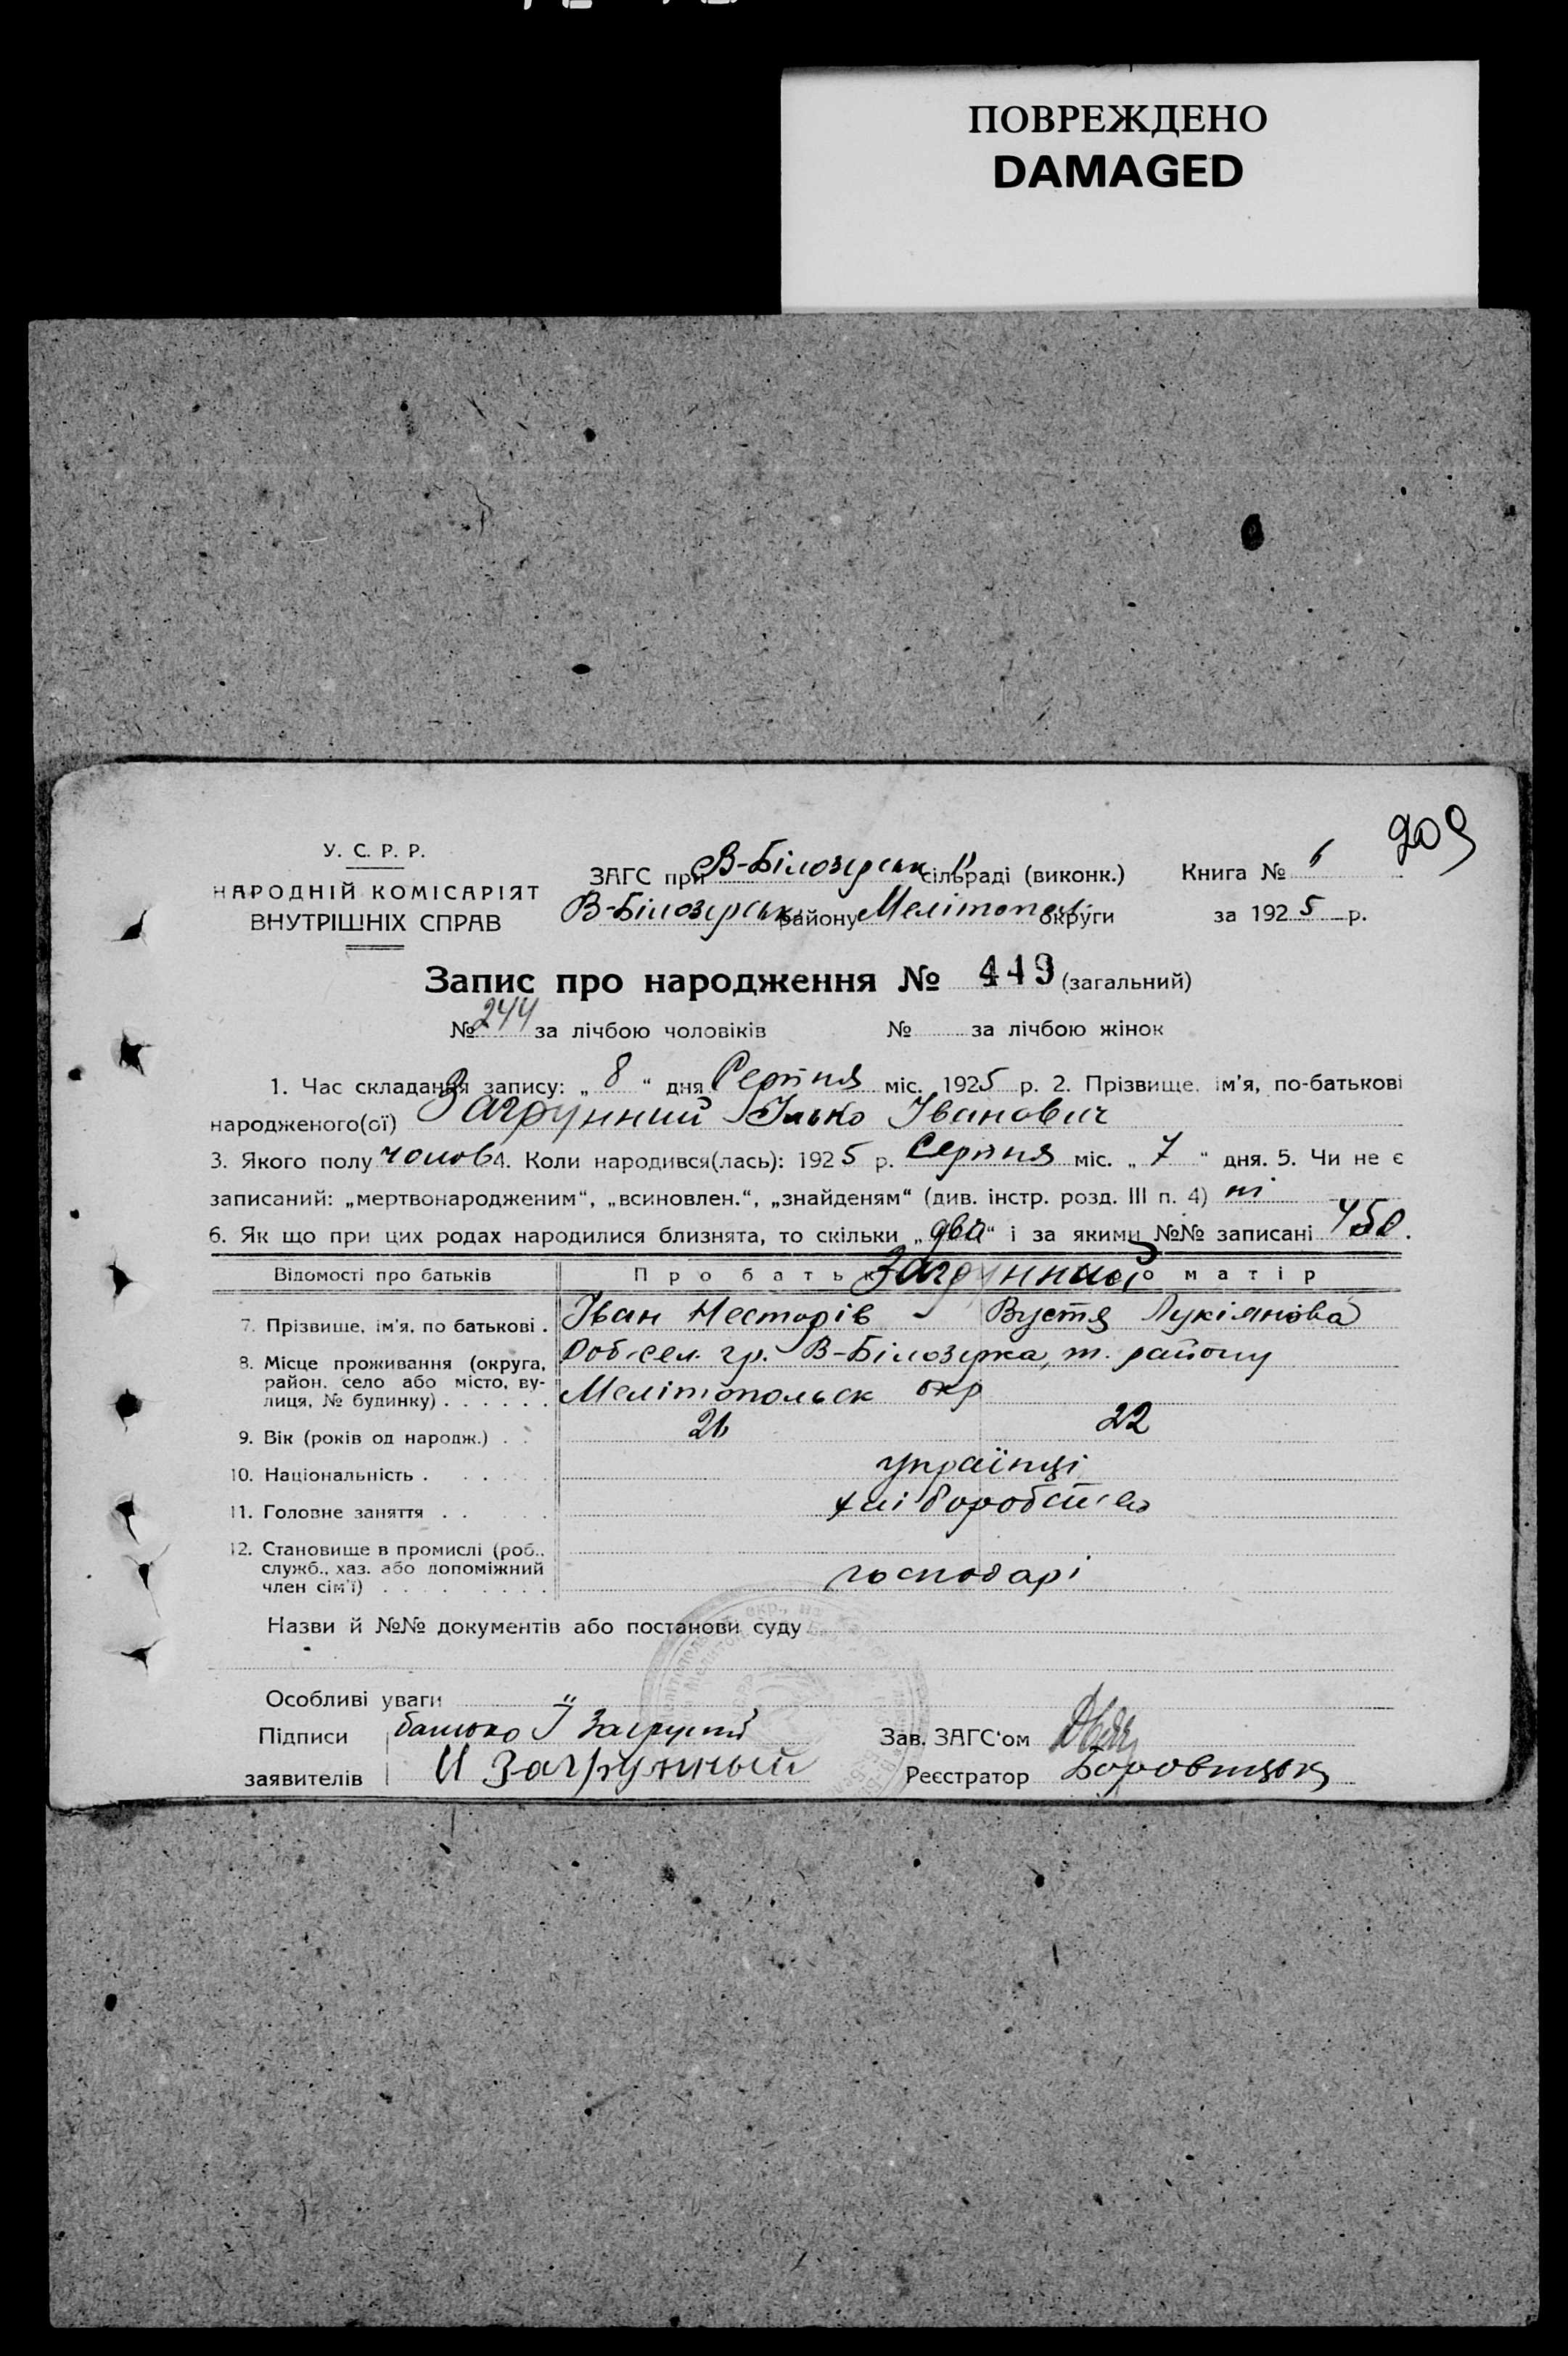 ПОВРЕЖДЕНО
DAMAGED
209
У. С. Р. Р.
НАРОДНІЙ КОМІСАРІЯТ
ВНУТРІШНІХ СПРАВ
ЗАГС при В-Білозерськ сільраді (виконк.)
В-Білозерськ району Мелітопол округи
Книга № 6
за 1925 р.
Запис про народження № 449 (загальний)
№ 244 за лічбою чоловіків № за лічбою жінок
1. Час складання запису: „ 8 “ дня Серпня міс. 1925 р. 2. Прізвище, ім'я, по-батькові
народженого(ої) Загрунний Ілько Іванович
3. Якого полу чолов 4. Коли народився(лась): 1925 р. Серпня міс. „ 7 “ дня. 5. Чи не є
записаний: „мертвонародженим“, „всиновлен.“, „знайденям“ (див. інстр. розд. III п. 4) ні
6. Як що при цих родах народилися близнята, то скільки „два“ і за якими №№ записані 450.
Відомості про батьків Про батька Про матір
Загрунний
7. Прізвище, ім'я, по батькові . Іван Несторів Вустя Лукіянова
8. Місце проживання (округа, район, село або місто, вулиця, № будинку) . . . . . . сел. гр. В-Білозерка, т. району
Мелітопольск окр
9. Вік (років од народж.) . . 26 22
10. Національність . . . . . . українці
11. Головне заняття . . . . . хліборобство
12. Становище в промислі (роб., служб., хаз. або допоміжний член сім'ї) . . . . . . . господарі
Назви й №№ документів або постанови суду
Особливі уваги
Підписи батько І Загрунний
заявителів И Загрунный
Зав. ЗАГС'ом
Реєстратор